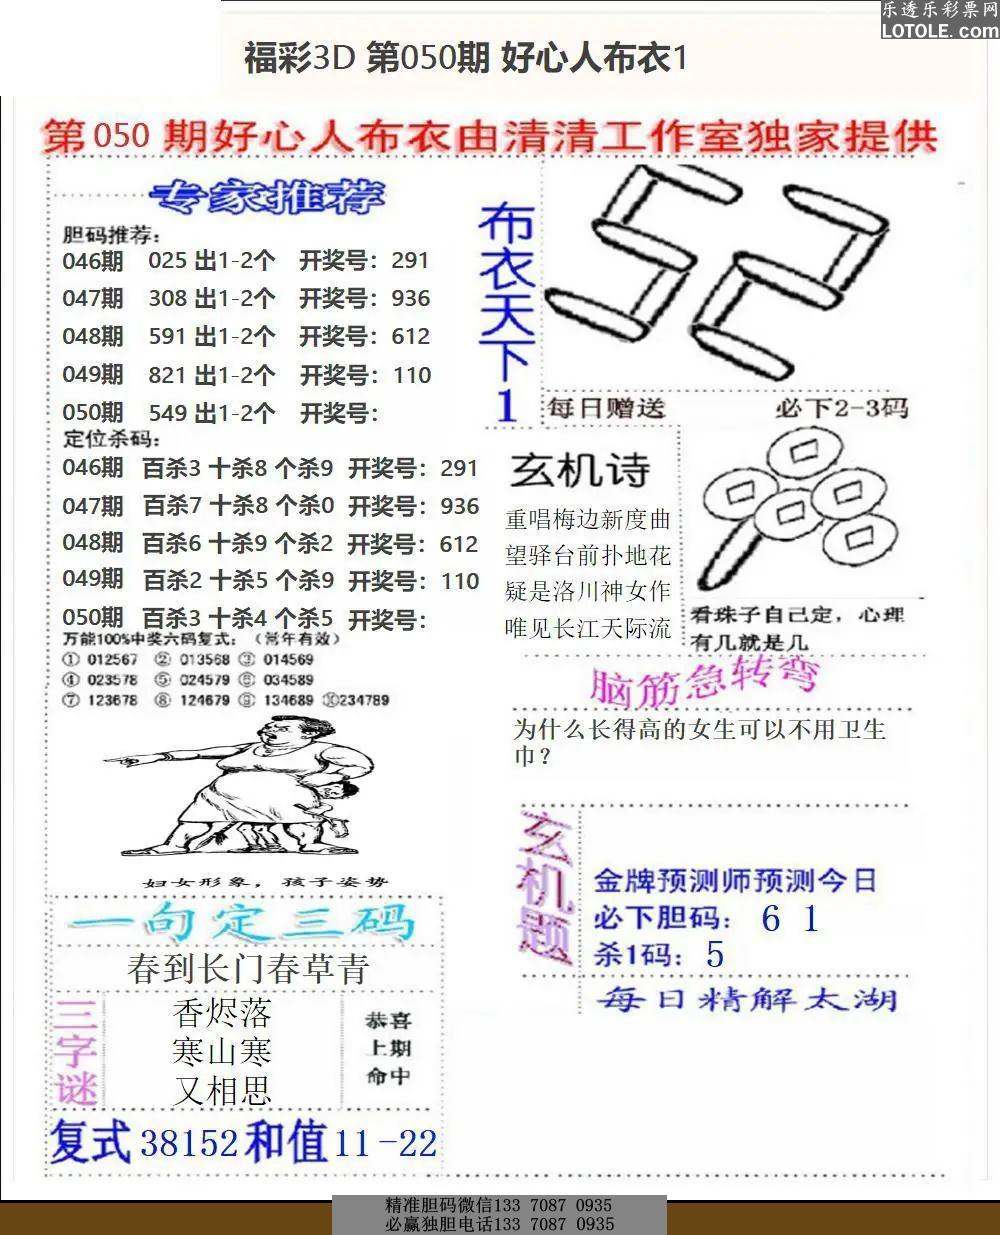 乐透乐彩票网
LOTOLE.com
福彩3D 第050期 好心人布衣1
第050 期好心人布衣由清清工作室独家提供
专家推荐
胆码推荐：
046期 025 出1-2个 开奖号：291
047期 308 出1-2个 开奖号：936
048期 591 出1-2个 开奖号：612
049期 821 出1-2个 开奖号：110
050期 549 出1-2个 开奖号：
定位杀码：
046期 百杀3 十杀8 个杀9 开奖号：291
047期 百杀7 十杀8 个杀0 开奖号：936
048期 百杀6 十杀9 个杀2 开奖号：612
049期 百杀2 十杀5 个杀9 开奖号：110
050期 百杀3 十杀4 个杀5 开奖号：
万能100%中奖六码复式：（常年有效）
① 012567 ② 013568 ③ 014569
④ 023578 ⑤ 024579 ⑥ 034589
⑦ 123678 ⑧ 124679 ⑨ 134689 ⑩234789
妇女形象，孩子姿势
一句定三码
春到长门春草青
三字谜
香烬落
寒山寒
又相思
恭喜
上期
命中
复式 38152 和值 11-22
布衣天下1
52
每日赠送 必下2-3码
玄机诗
重唱梅边新度曲
望驿台前扑地花
疑是洛川神女作
唯见长江天际流
看珠子自己定，心理
有几就是几
脑筋急转弯
为什么长得高的女生可以不用卫生
巾？
玄机题
金牌预测师预测今日
必下胆码： 6 1
杀1码： 5
每日精解太湖
精准胆码微信133 7087 0935
必赢独胆电话133 7087 0935